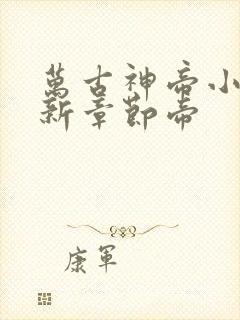 萬古神帝小
新章節帝
康軍